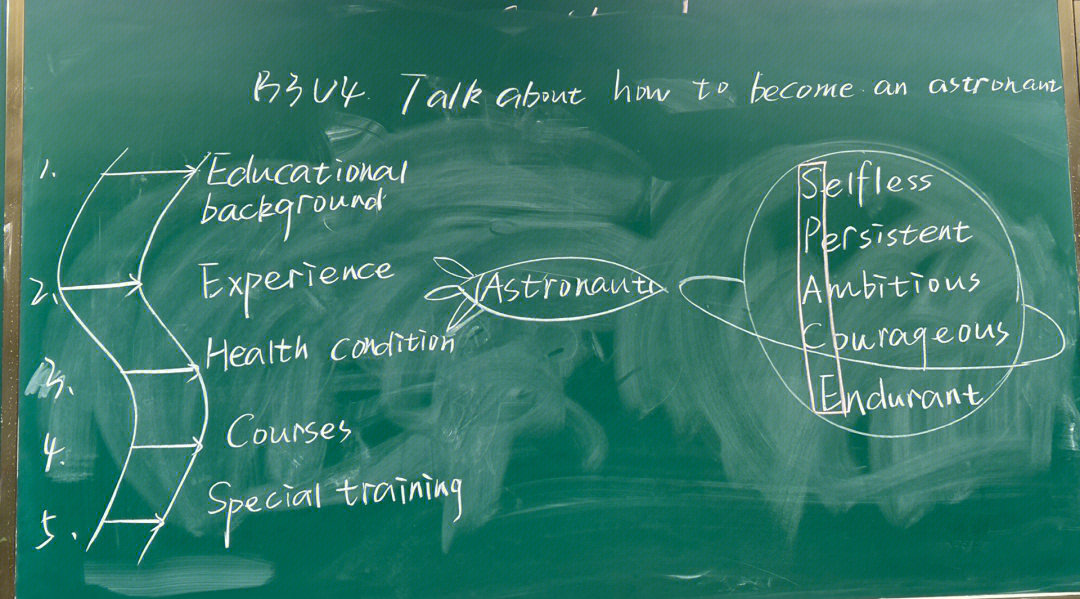 B3U4. Talk about how to become an astronaut
1. Educational
background
2. Experience
3. Health condition
4. Courses
5. Special training
Astronaut
Selfless
Persistent
Ambitious
Courageous
Endurant